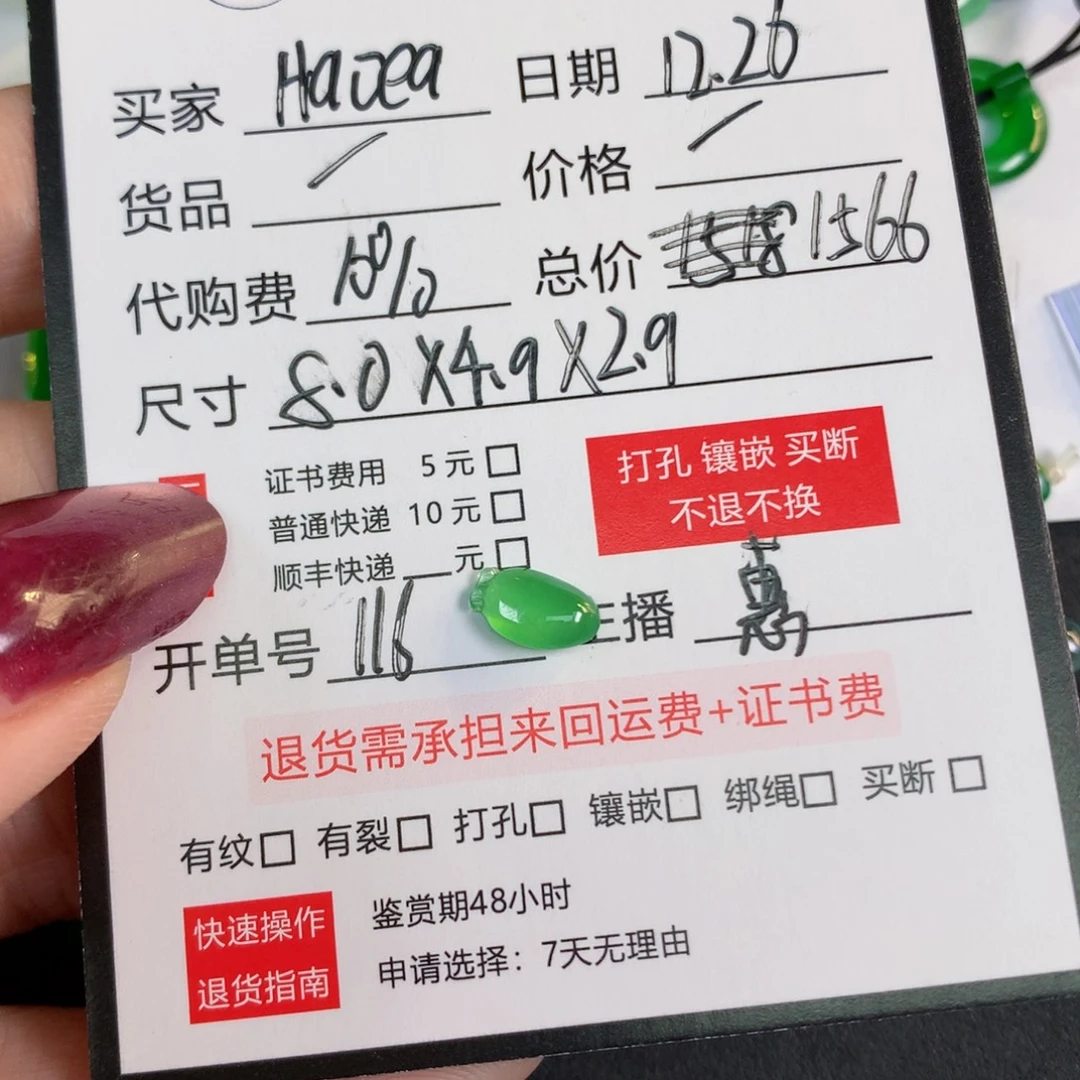 买家 Haoea 日期 12.26
货品 / 价格 /
代购费 15% 总价 1566
尺寸 8.0X4.9X2.9
证书费用 5元□
普通快递 10元□
顺丰快递 元□
打孔 镶嵌 买断
不退不换
开单号 116 主播 惠
退货需承担来回运费+证书费
有纹□ 有裂□ 打孔□ 镶嵌□ 绑绳□ 买断□
快速操作
退货指南
鉴赏期48小时
申请选择：7天无理由